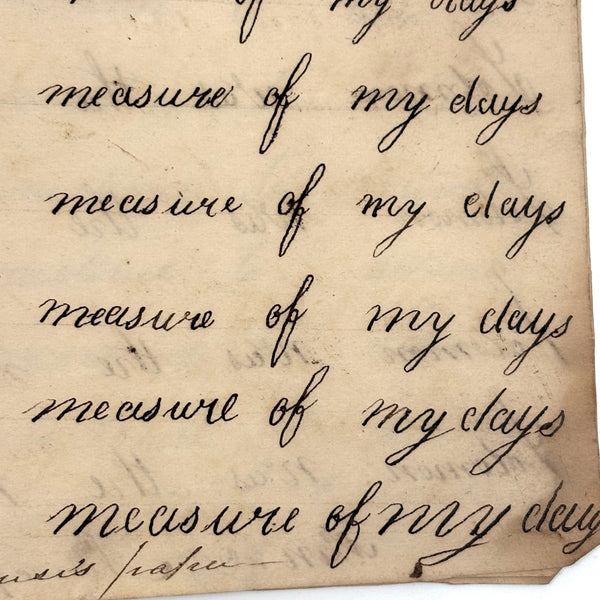 of my days
measure of my days
measure of my days
measure of my days
measure of my days
measure of my day